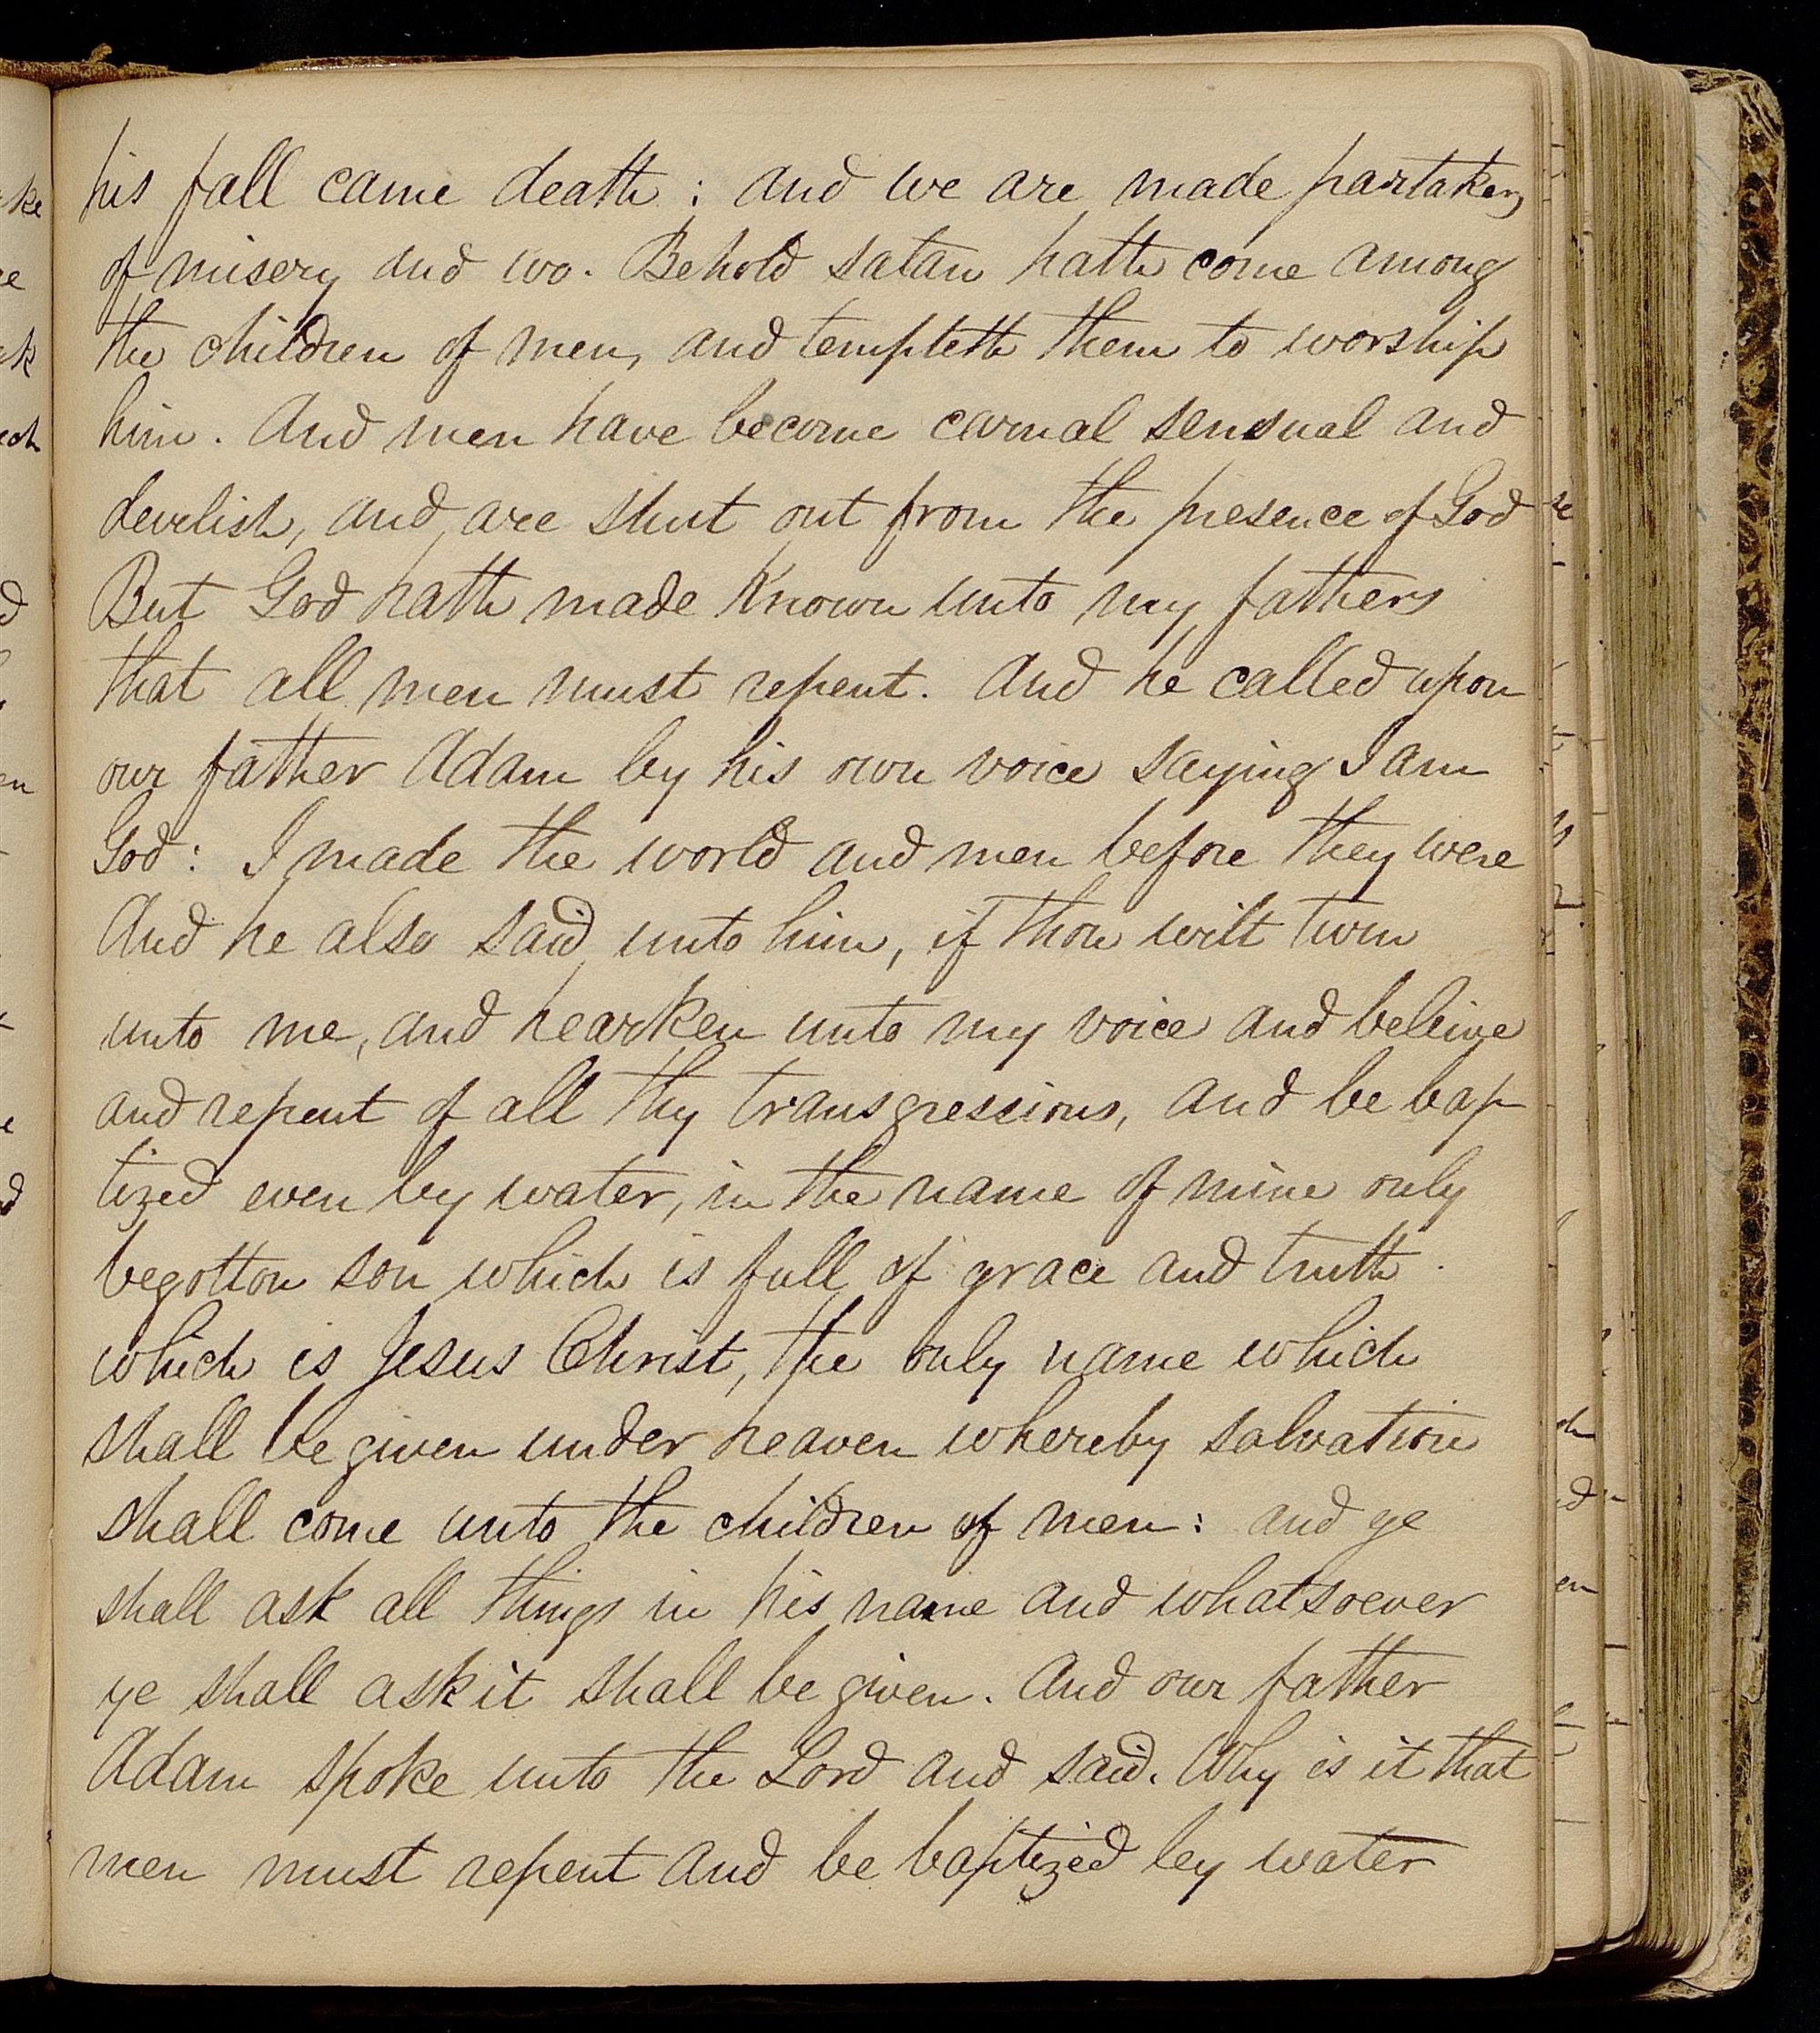 his fall came death; and we are made partakers
of misery and wo. Behold satan hath come among
the children of men, and tempteth them to worship
him. And men have become carnal sensual and
develish, and are shut out from the presence of God
But God hath made known unto my fathers
that all men must repent. And he called upon
our father Adam by his own voice saying I am
God: I made the world and men before they were
And he also said unto him, if thou wilt turn
unto me, and hearken unto my voice and beleive
and repent of all thy transgressions, and be bap
tized even by water, in the name of mine only
begotton son which is full of grace and truth.
which is Jesus Christ, the only name which
shall be given under heaven whereby salvation
shall come unto the children of men: and ye
shall ask all things in his name and whatsoever
ye shall ask it shall be given. And our father
Adam spoke unto the Lord and said. Why is it that
men must repent and be baptized by water